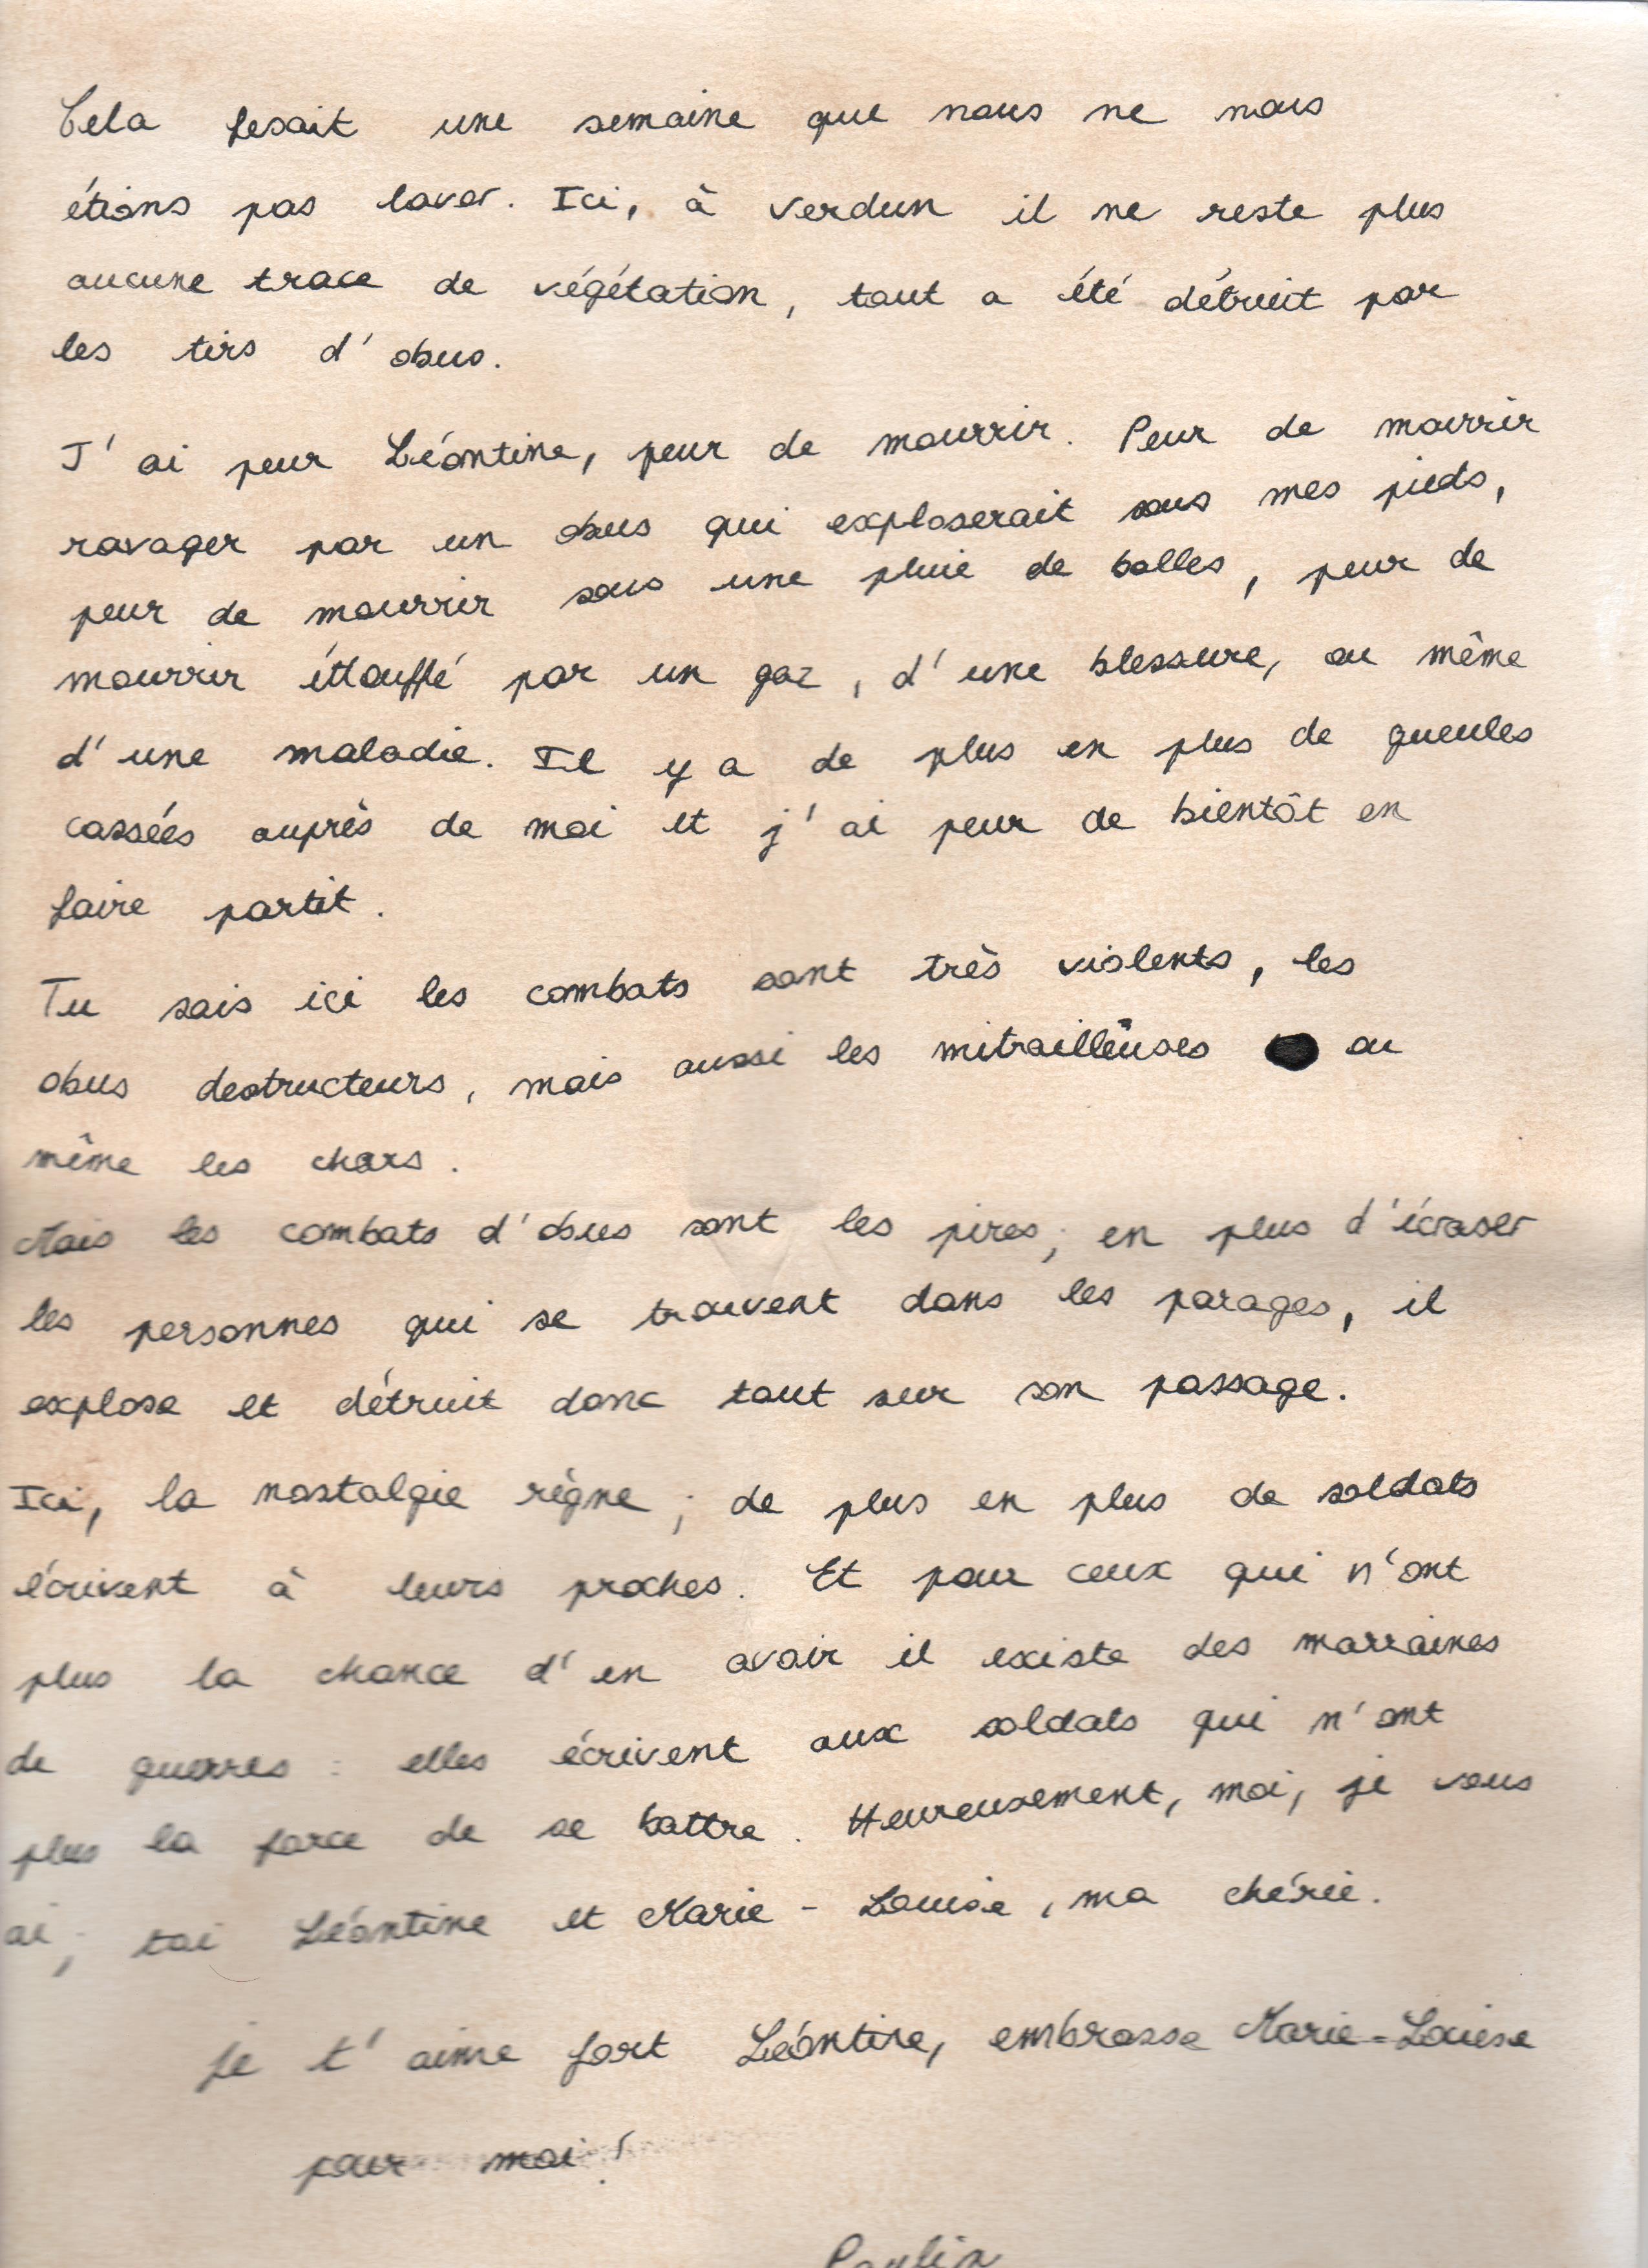 Cela fesait une semaine que nous ne nous
étions pas laver. Ici, à Verdun il ne reste plus
aucune trace de végétation, tout a été détruit par
les tirs d'obus.
J'ai peur Léontine, peur de mourrir. Peur de mourrir
ravager par un obus qui exploserait sous mes pieds,
peur de mourrir sous une pluie de balles, peur de
mourrir étouffé par un gaz, d'une blessure, ou même
d'une maladie. Il y a de plus en plus de gueules
cassées auprès de moi et j'ai peur de bientôt en
faire partit.
Tu sais ici les combats sont très violents, les
obus destructeurs, mais aussi les mitrailleuses ou
même les chars.
Mais les combats d'obus sont les pires; en plus d'écraser
les personnes qui se trouvent dans les parages, il
explose et détruit donc tout sur son passage.
Ici, la nostalgie règne; de plus en plus de soldats
écrivent à leurs proches. Et pour ceux qui n'ont
plus la chance d'en avoir il existe des marraines
de guerres : elles écrivent aux soldats qui n'ont
plus la force de se battre. Heureusement, moi, je vous
ai; toi Léontine et Marie-Louise, ma chérie.
je t'aime fort Léontine, embrasse Marie-Louise
pour moi !
Paulin